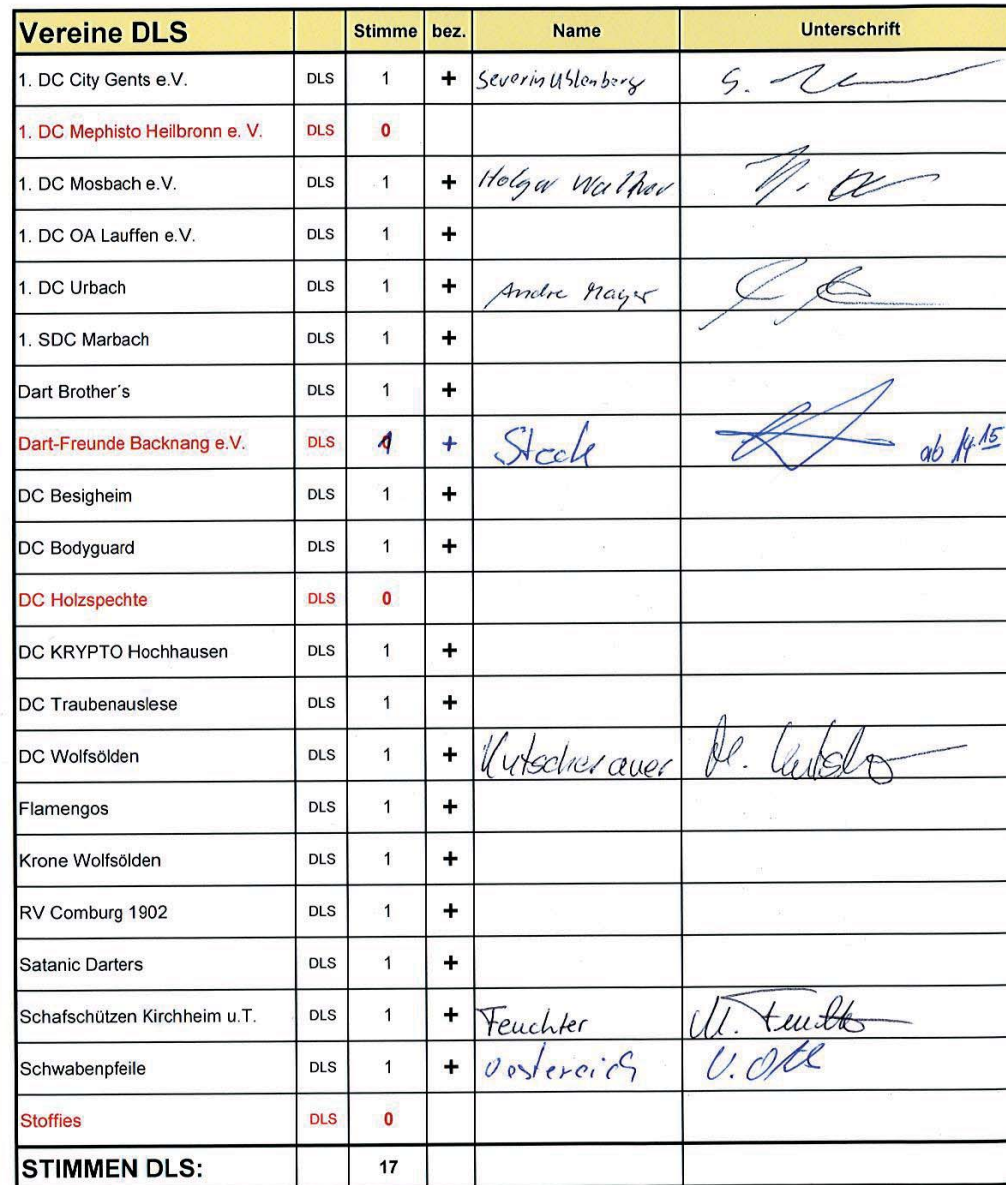 Vereine DLS Stimme bez. Name Unterschrift
1. DC City Gents e.V. DLS 1 + Severin Uhlenberg
1. DC Mephisto Heilbronn e. V. DLS 0
1. DC Mosbach e.V. DLS 1 + Holger Walther
1. DC OA Lauffen e.V. DLS 1 +
1. DC Urbach DLS 1 + Andre Mayer
1. SDC Marbach DLS 1 +
Dart Brother´s DLS 1 +
Dart-Freunde Backnang e.V. DLS 1 + Steck ab 14.15
DC Besigheim DLS 1 +
DC Bodyguard DLS 1 +
DC Holzspechte DLS 0
DC KRYPTO Hochhausen DLS 1 +
DC Traubenauslese DLS 1 +
DC Wolfsölden DLS 1 + Kutscherauer
Flamengos DLS 1 +
Krone Wolfsölden DLS 1 +
RV Comburg 1902 DLS 1 +
Satanic Darters DLS 1 +
Schafschützen Kirchheim u.T. DLS 1 + Feuchter M. Feuchter
Schwabenpfeile DLS 1 + Oestereich
Stoffies DLS 0
STIMMEN DLS: 17